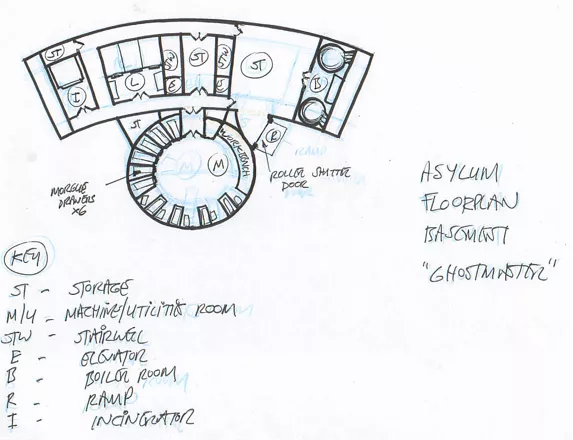 ST
ST
ST
STW
STW
I
L
E
E
B
ST
M
M
WORKBENCH
R
RAMP
ROLLER SHUTTER
DOOR
MORGUE
DRAWERS
X6
ASYLUM
FLOORPLAN
BASEMENT
"GHOSTMASTER"
KEY
ST - STORAGE
M/U - MACHINE/UTILITIES ROOM
STW - STAIRWELL
E - ELEVATOR
B - BOILER ROOM
R - RAMP
I - INCINERATOR